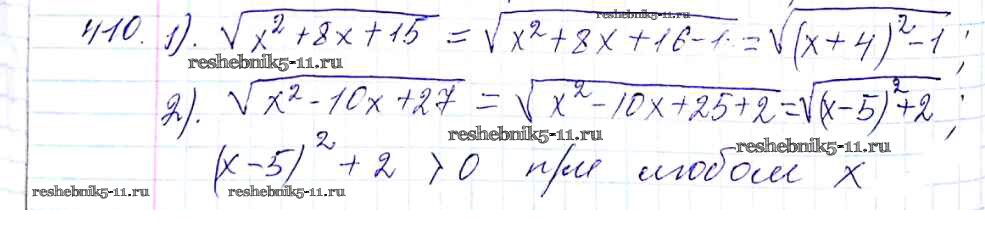 410. 1). √(x² + 8x + 15) = √(x² + 8x + 16 - 1) = √((x + 4)² - 1) ;
reshebnik5-11.ru
reshebnik5-11.ru
2). √(x² - 10x + 27) = √(x² - 10x + 25 + 2) = √((x - 5)² + 2) ;
reshebnik5-11.ru
reshebnik5-11.ru
(x - 5)² + 2 > 0 при любом x
reshebnik5-11.ru
reshebnik5-11.ru